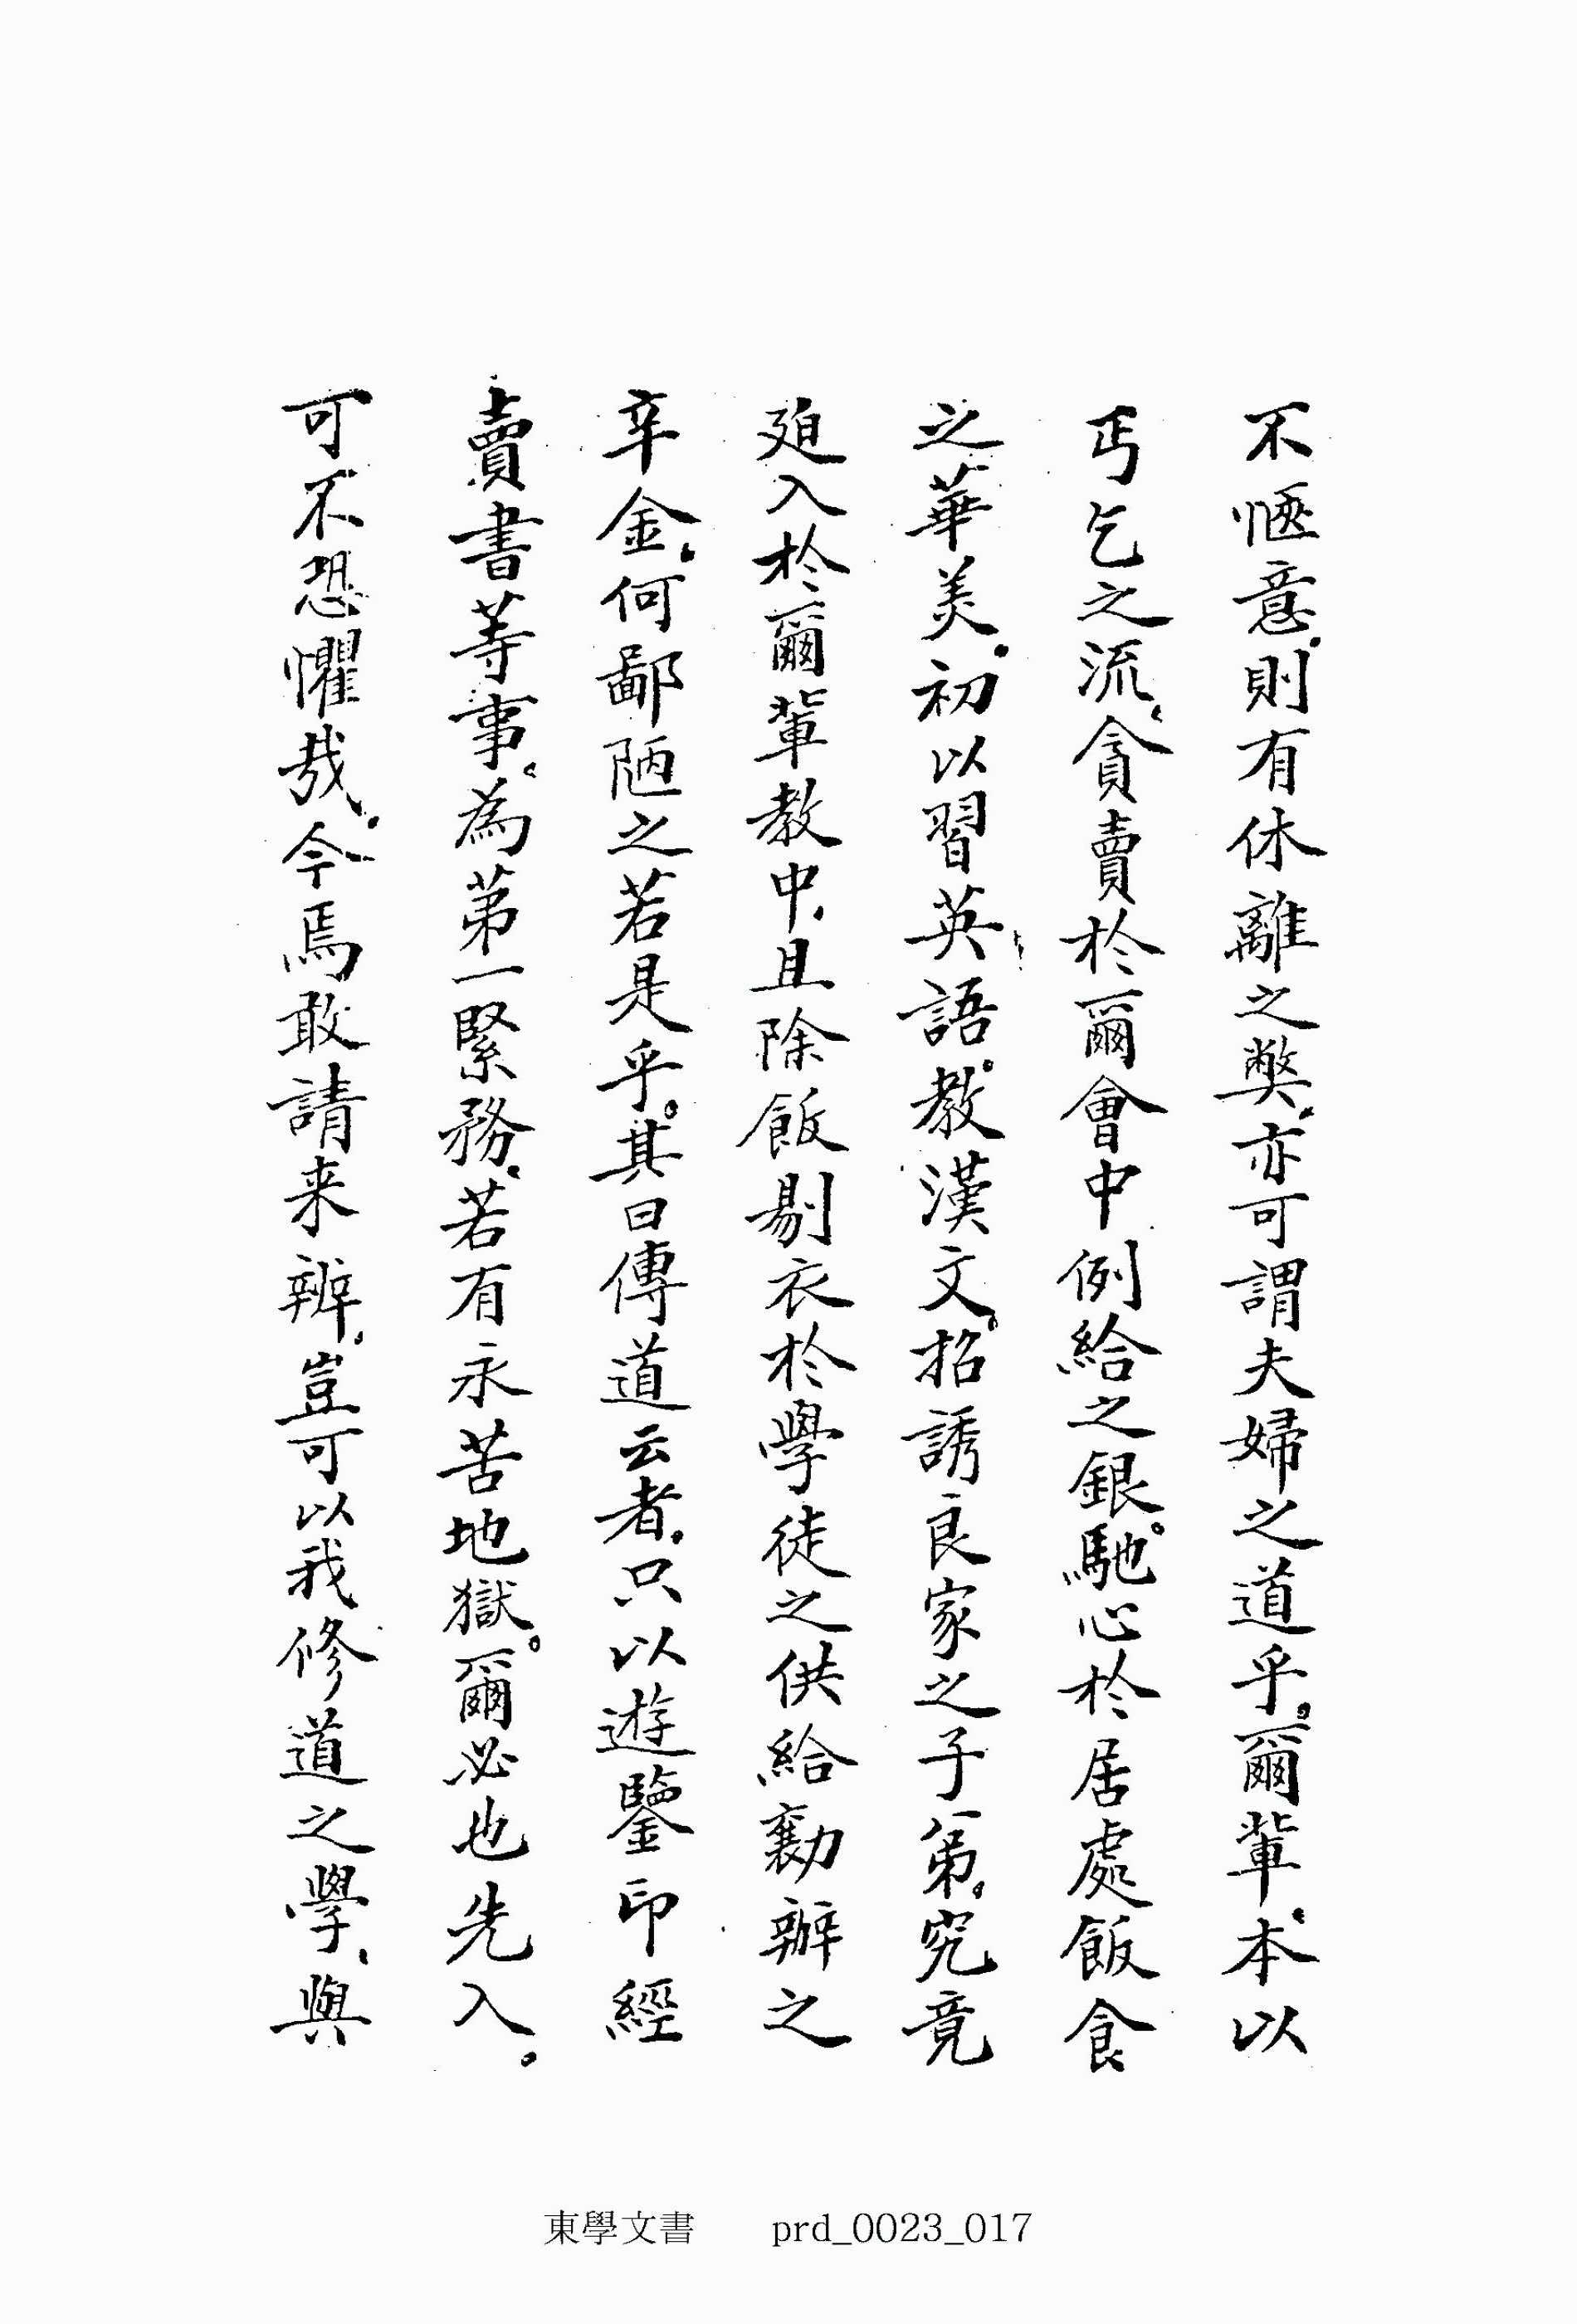 不愜意。則有休離之弊。亦可謂夫婦之道乎。爾輩。本以
丐乞之流。貪賣於爾會中例給之銀。馳心於居處飯食
之華美。初以習英語。教漢文。招誘良家之子弟。究竟
廹入於爾輩教中。且除飯剔衣於學徒之供給勷辦之
辛金。何鄙陋之若是乎。其曰傳道云者。只以遊鑒印經
賣書等事。為第一緊務。若有永苦地獄。爾必也先入。
可不恐懼哉。今焉敢請来辨。豈可以我修道之學。與
東學文書 prd_0023_017